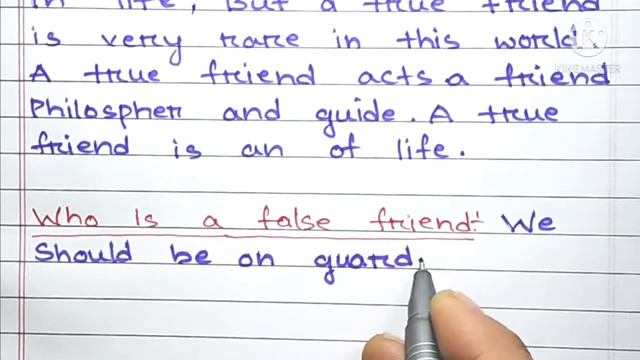 in life, But a true friend
is very rare in this world.
A true friend acts a friend
Philospher and guide. A true
friend is an of life.
Who is a false friend:- We
should be on guard.
KINEMASTER